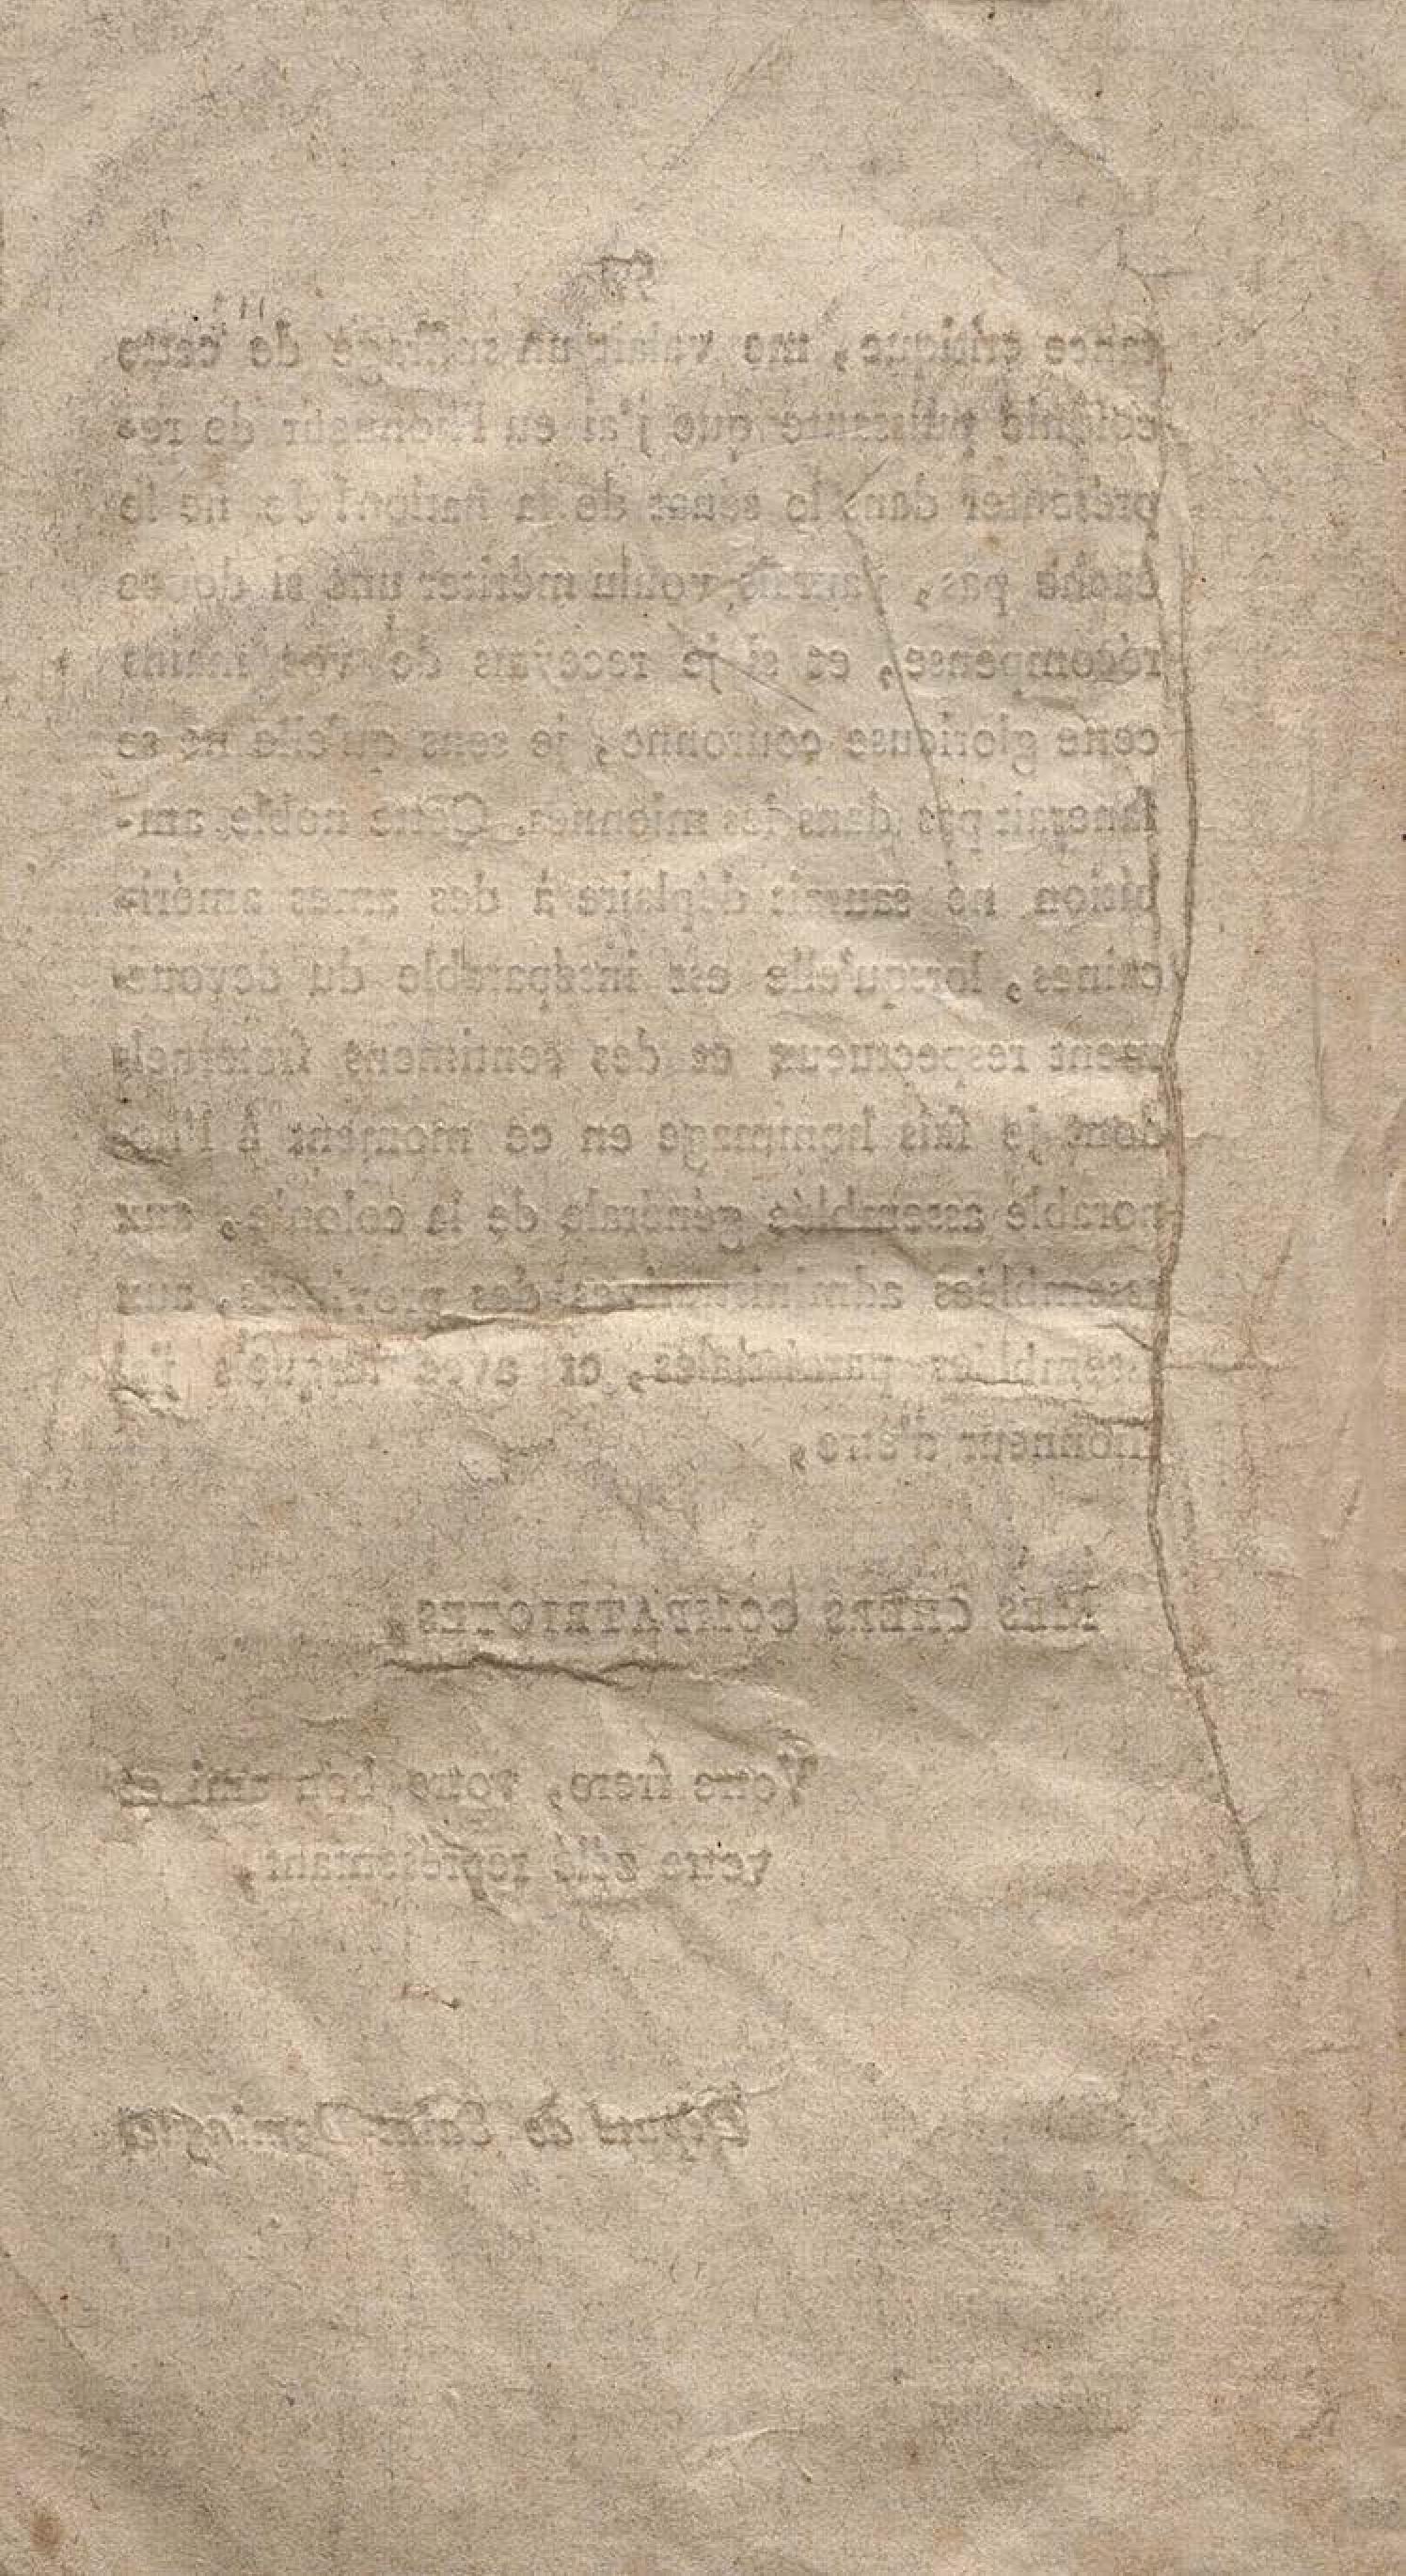 tance critique, me valait un suffrage de cette
colonie puissante que j'ai eu l'honneur de re-
présenter dans le sénat de la nation! Je ne le
cache pas, j'aurais voulu mériter une si douce
récompense, et si je recevais de vos mains
cette glorieuse couronne, je sens qu'elle ne se
fanerait pas dans les miennes. Cette noble am-
bition ne saurait déplaire à des ames améri-
caines, lorsqu'elle est inséparable du dévoue-
ment respectueux et des sentimens fraternels
dont je fais hommage en ce moment à l'ho-
norable assemblée générale de la colonie, aux
assemblées administratives des provinces, aux
assemblées paroissiales, et avec lesquels j'ai
l'honneur d'être,
MES CHERS COMPATRIOTES,
Votre frère, votre bon ami et
votre zélé représentant,
Député de Saint-Domingue